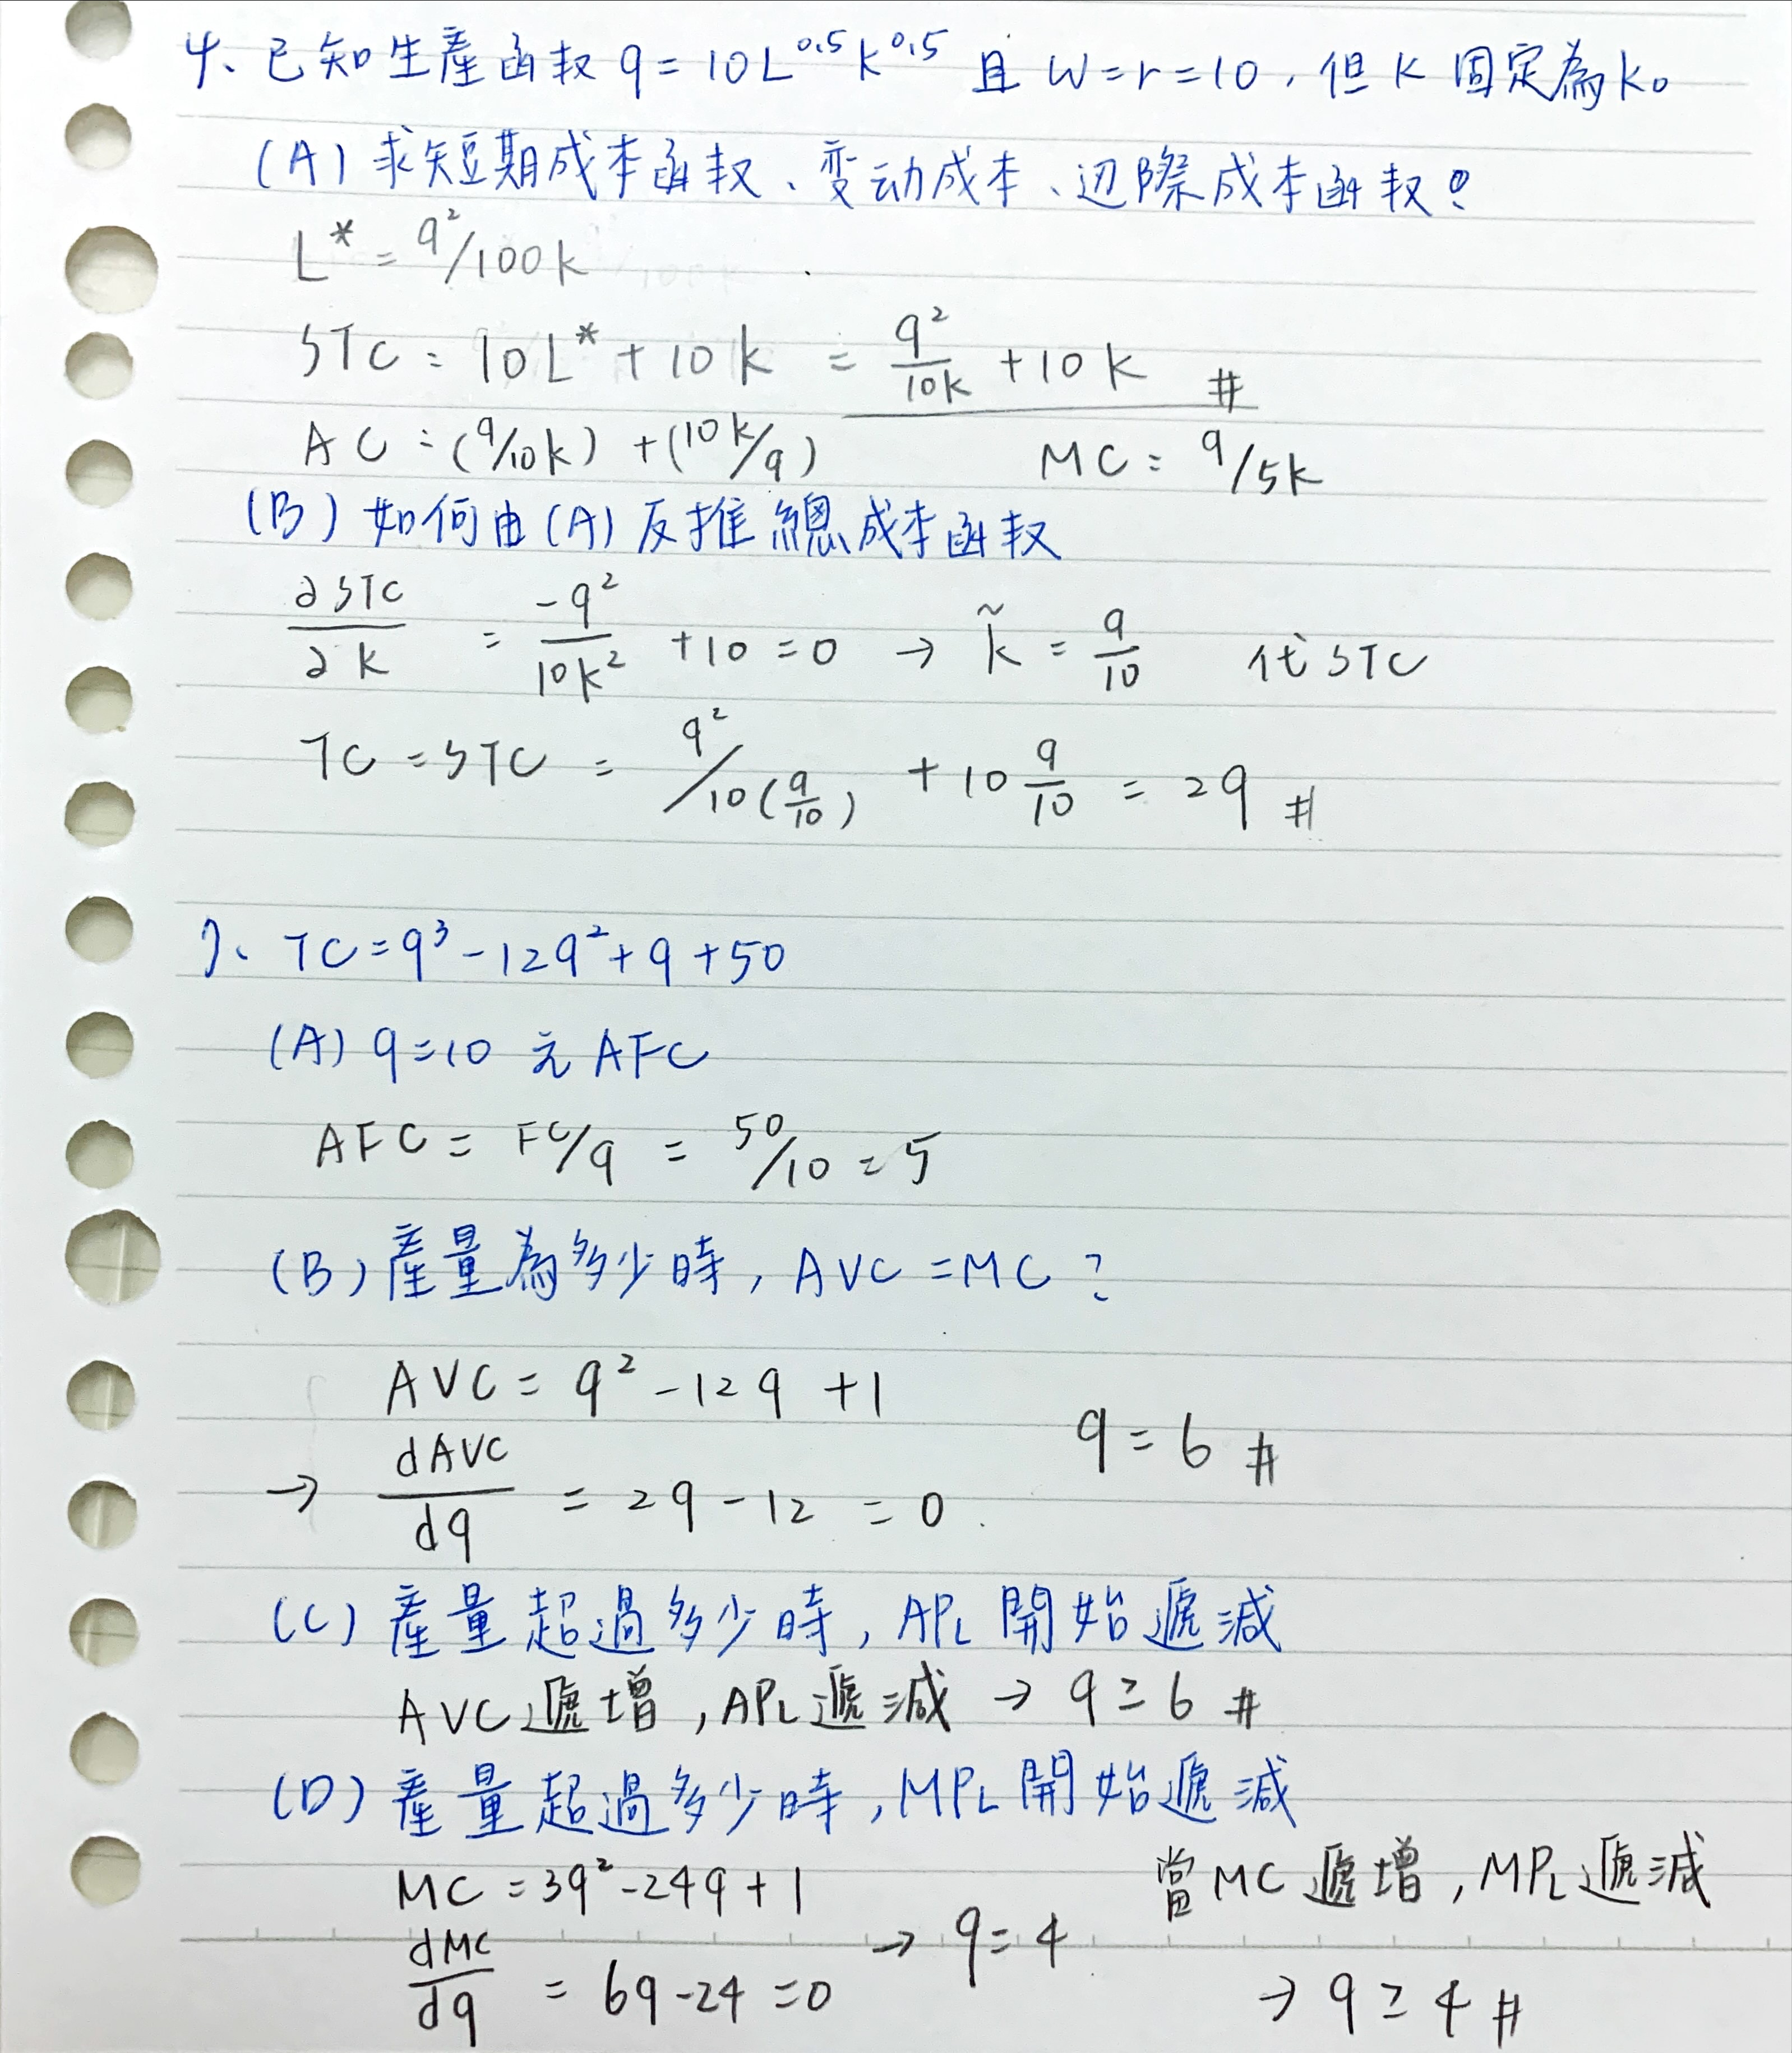 4、已知生產函数 q = 10L^0.5 K^0.5 且 w = r = 10,但 K 固定為 k。
(A) 求短期成本函数、变动成本、边際成本函数?
L* = q²/100k
STC = 10L* + 10k = q²/10k + 10k #
AC = (q/10k) + (10k/q)    MC = q/5k
(B) 如何由(A)反推總成本函数
∂STC/∂k = -q²/10k² + 10 = 0 → k̃ = q/10 代STC
TC = STC = q²/10(q/10) + 10 q/10 = 2q #
5、TC = q³ - 12q² + q + 50
(A) q = 10 之 AFC
AFC = FC/q = 50/10 = 5
(B) 產量為多少時, AVC = MC ?
AVC = q² - 12q + 1
→ dAVC/dq = 2q - 12 = 0    q = 6 #
(C) 產量超過多少時, APL 開始遞減
AVC遞增, APL遞減 → q ≥ 6 #
(D) 產量超過多少時, MPL 開始遞減
MC = 3q² - 24q + 1    當MC遞增, MPL遞減
dMC/dq = 6q - 24 = 0 → q = 4    → q ≥ 4 #